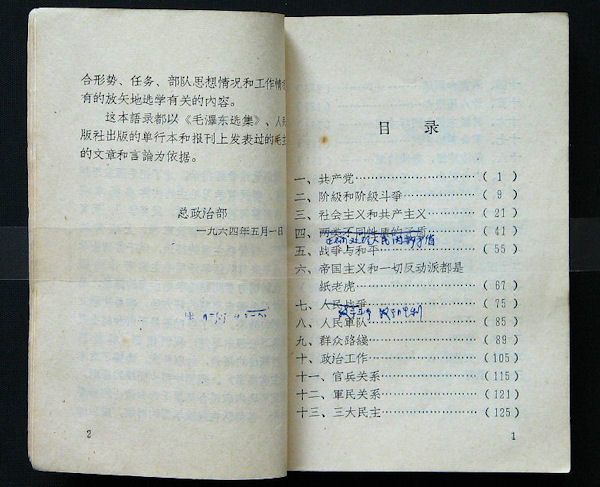 合形势、任务、部队思想情况和工作情
有的放矢地选学有关的内容。
这本語录都以《毛澤东选集》、人
版社出版的单行本和报刊上发表过的毛
的文章和言論为依据。
总政治部
一九六四年五月一日
2
目 录
一、共产党……………………………( 1 )
二、阶級和阶級斗爭…………………( 9 )
三、社会主义和共产主义……………( 21 )
四、两类不同性质的矛盾……………( 41 )
正确处理人民内部矛盾
五、战爭与和平………………………( 55 )
六、帝国主义和一切反动派都是
紙老虎……………………………( 67 )
七、人民战爭…………………………( 75 )
八、人民軍队…………………………( 85 )
九、群众路綫…………………………( 89 )
十、政治工作…………………………( 105 )
十一、官兵关系………………………( 115 )
十二、軍民关系………………………( 121 )
十三、三大民主………………………( 125 )
1